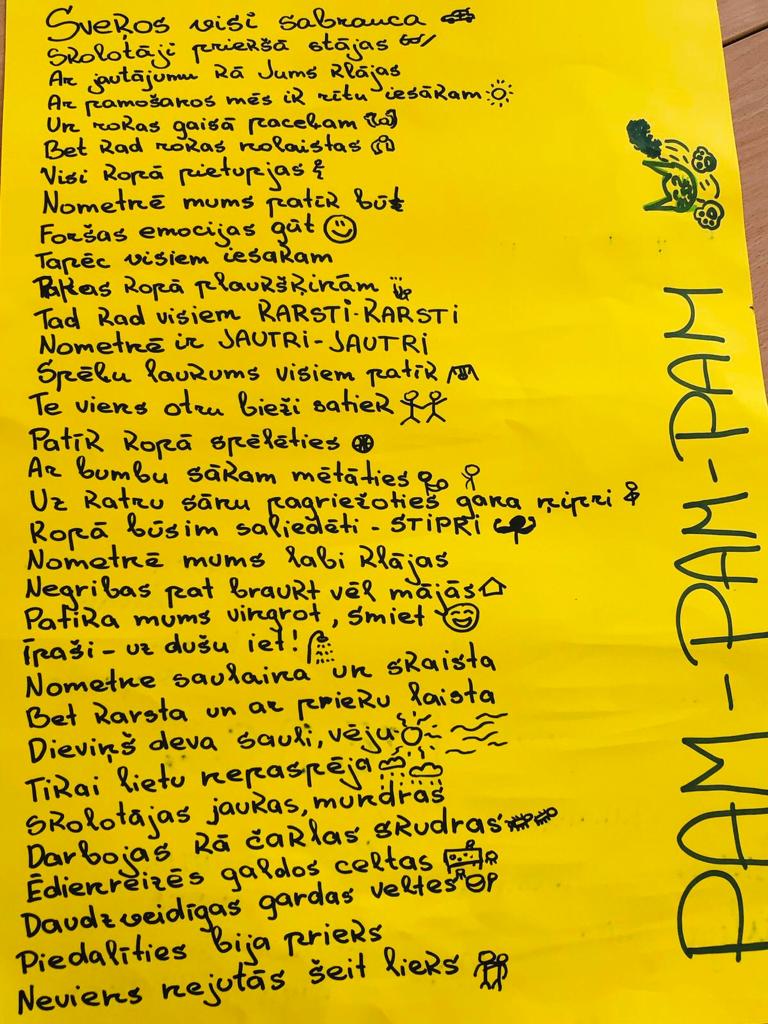 Svekos visi sabrauca
Skolotāji priekšā stājas
Ar jautājumu kā Jums klājas
Ar pamošanos mēs ik rītu iesākam
Un rokas gaisā paceļam
Bet kad rokas nolaistas
Visi kopā pietupjas
Nometnē mums patīk būt
Foršas emocijas gūt
Tapēc visiem iesakam
Pakas kopā plaukšķinām
Tad kad visiem KARSTI-KARSTI
Nometnē ir JAUTRI-JAUTRI
Spēļu laukums visiem patīk
Te viens otru bieži satiek
Patīk kopā spēlēties
Ar bumbu sākam mētāties
Uz katru sānu pagriežoties gana ņipri
Kopā būsim saliedēti - STIPRI
Nometnē mums labi klājas
Negribas pat braukt vēl mājās
Patika mums vingrot, smiet
Īpaši - uz dušu iet!
Nometne saulaina un skaista
Bet karsta un ar prieku laista
Dieviņš deva sauli, vēju
Tikai lietu nepaspēja
Skolotājas jaukas, mundras
Darbojas kā čaklas skudras
Ēdienreizēs galdos celtas
Daudzveidīgas gardas veltes
Piedalīties bija prieks
Neviens nejutās šeit lieks
PAM-PAM-PAM-PAM